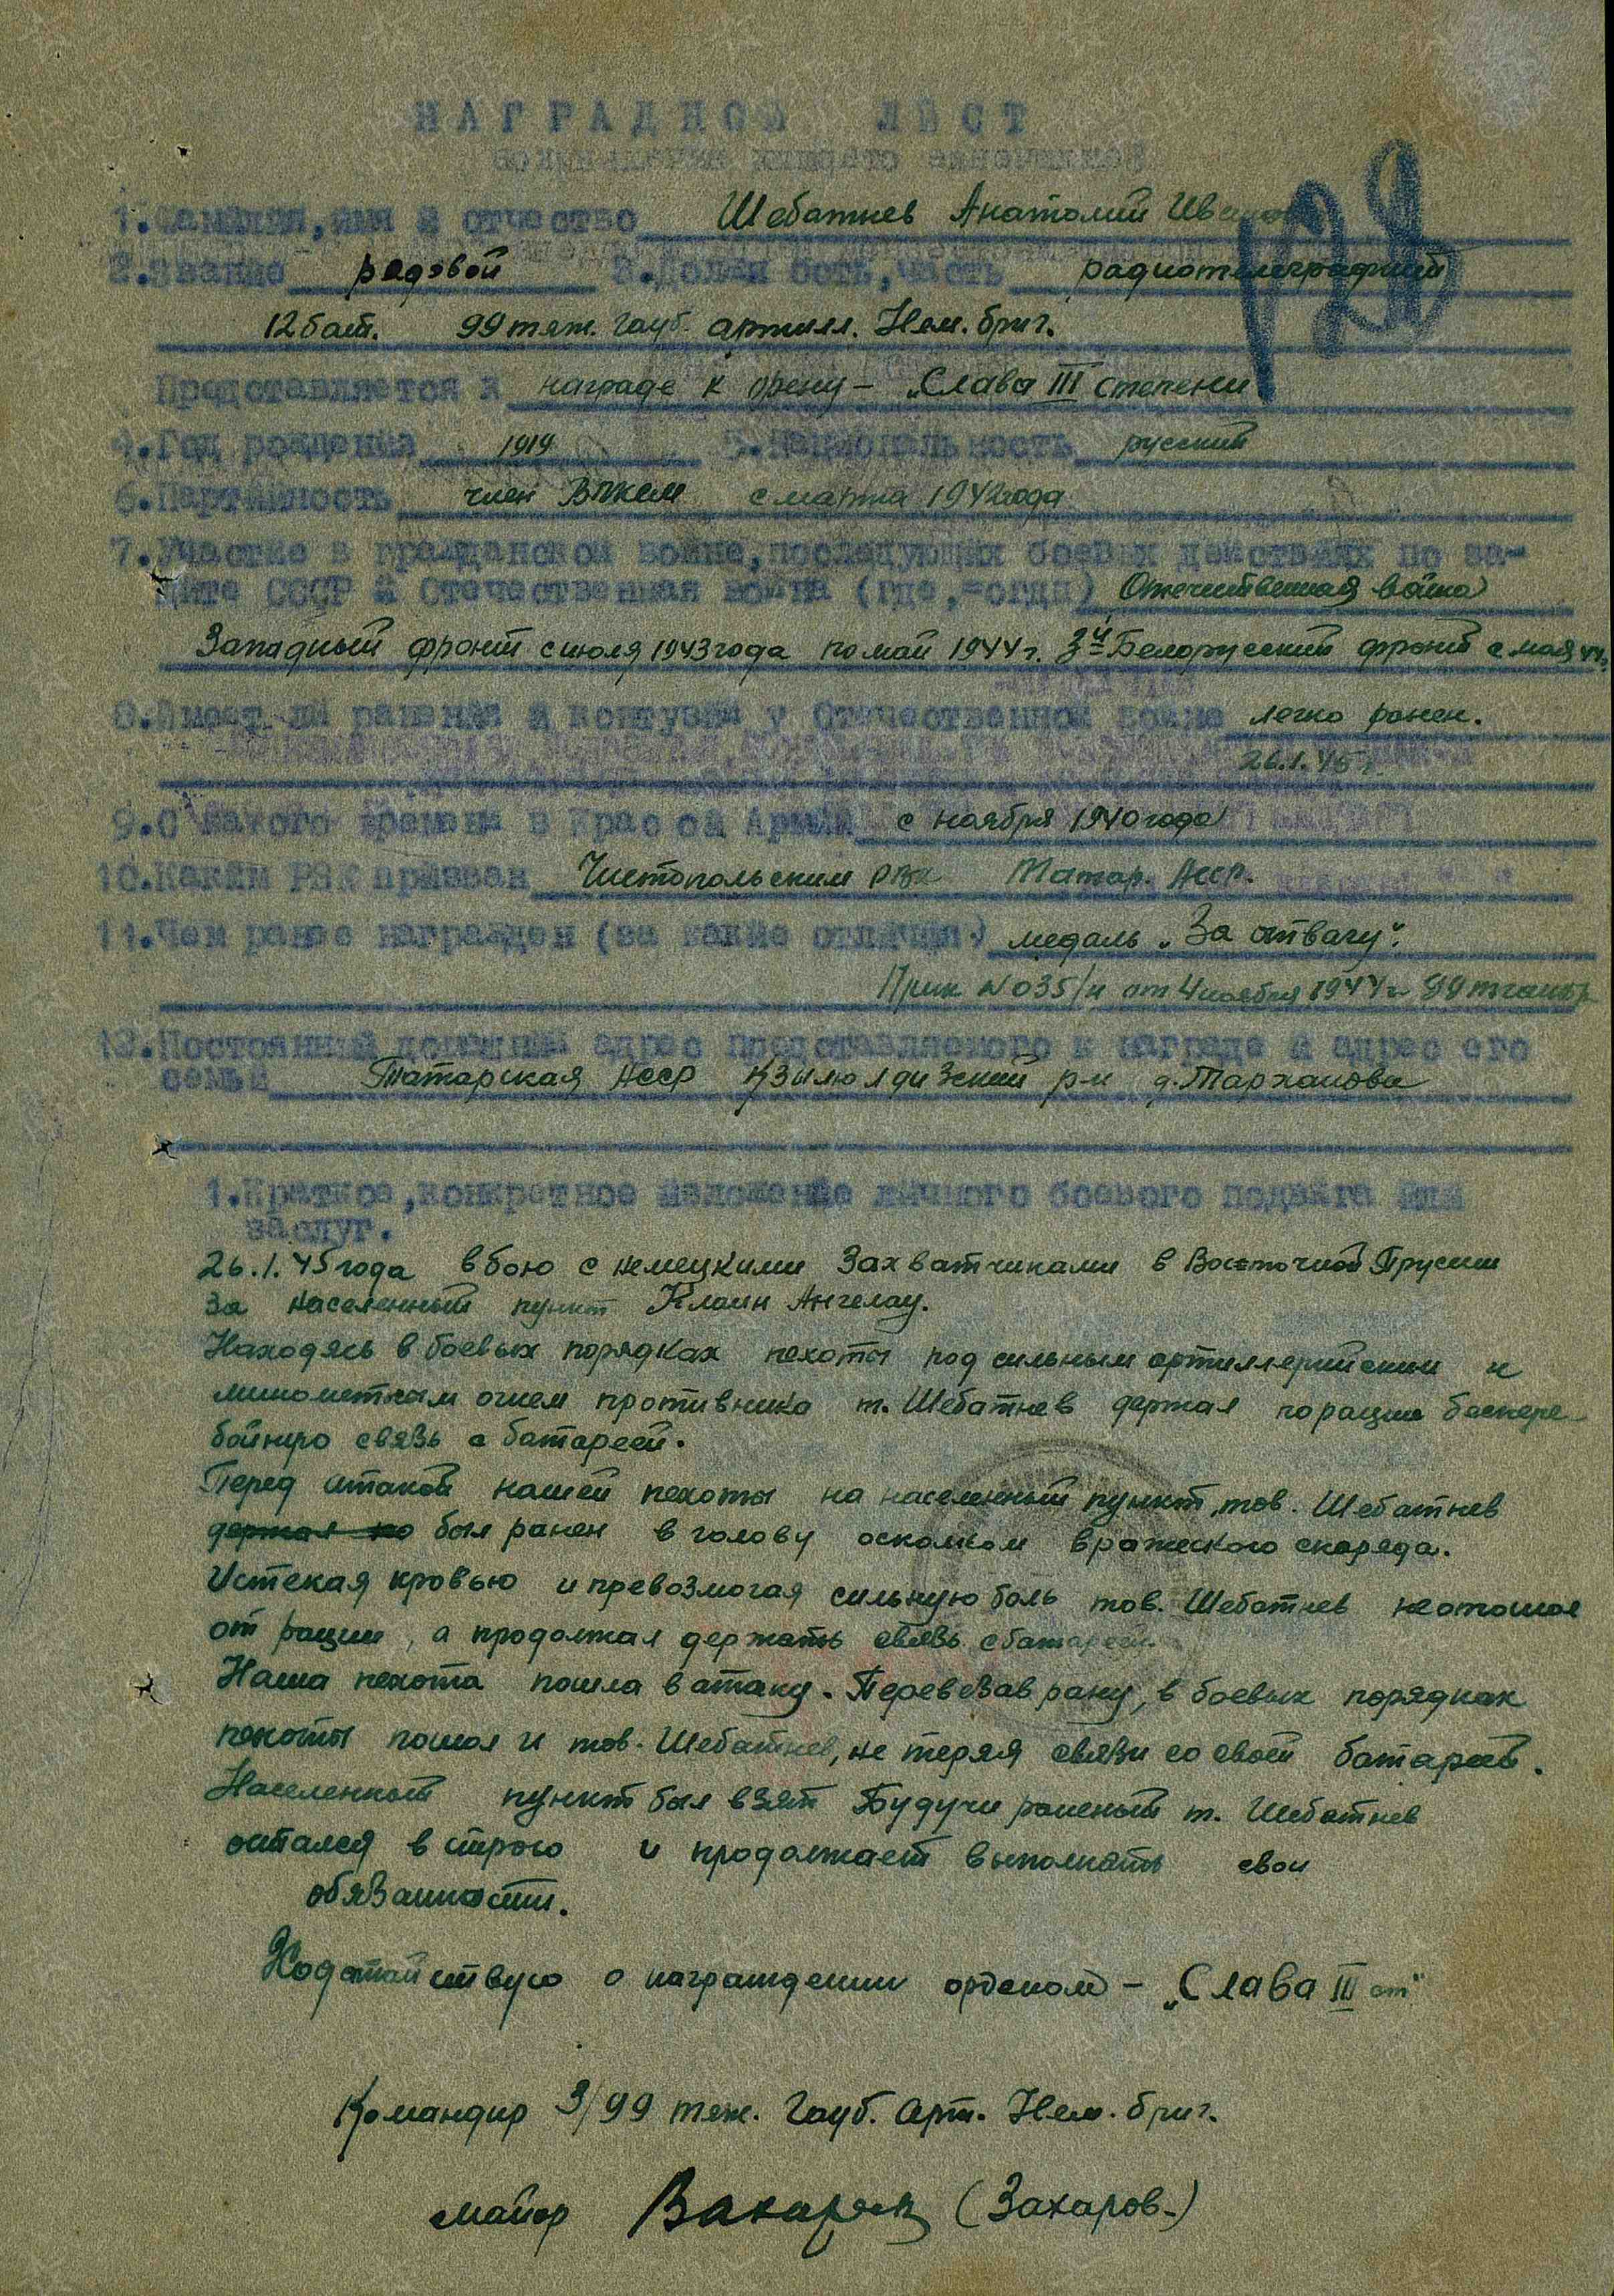 НАГРАДНОЙ ЛИСТ
1. Фамилия, имя и отчество Шебатнев Анатолий
2. Звание рядовой 3. Должность, часть радиотелеграфист
12 бат. 99 тяж. гауб. артилл. Нем. бриг.
Представляется к награде к ордену – „Слава III степени
4. Год рождения 1919 5. Национальность русский
6. Партийность член ВЛКСМ с марта 1942 года
7. Участие в гражданской войне, последующих боевых действиях по за-
щите СССР и Отечественная война (где, когда) Отечественная война
Западный фронт с июля 1943 года по май 1944 г. 3й Белорусский фронт с мая 44 г.
8. Имеет ли ранения и контузии у Отечественной войне легко ранен.
26.1.45 г.
9. С какого времени в Красной Армии с ноября 1940 года
10. Каким РВК призван Чистопольским РВК Татар. АССР.
11. Чем ранее награжден (за какие отличия) медаль „За отвагу".
Прик №035/н от 4 ноября 1944 г. 99 тгабр
12. Постоянный домашний адрес представляемого к награде и адрес его
семьи Татарская АССР Кзылюлдизский р-н д. Тарханова
1. Краткое, конкретное изложение личного боевого подвига или
заслуг.
26.1.45 года в бою с немецкими захватчиками в Восточной Прусии
за населенный пункт Клаин Ангелау.
Находясь в боевых порядках пехоты под сильным артиллерийским и
минометным огнем противника т. Шебатнев держал по рации беспере-
бойную связь с батареей.
Перед атакой нашей пехоты на населенный пункт, тов. Шебатнев
держал по был ранен в голову осколком вражеского снаряда.
Истекая кровью и превозмогая сильную боль тов. Шебатнев не отошол
от рации, а продолжал держать связь с батареей.
Наша пехота пошла в атаку. Перевезав рану, в боевых порядках
пехоты пошол и тов. Шебатнев, не теряя связи со своей батареей.
Населенный пункт был взят Будучи раненый т. Шебатнев
остался в строю и продолжает выполнять свои
обязанности.
Ходатайствую о награждении орденом – „Слава III ст"
Командир 3/99 тяж. Гауб. Арт. Нем. бриг.
майор Захаров (Захаров.)